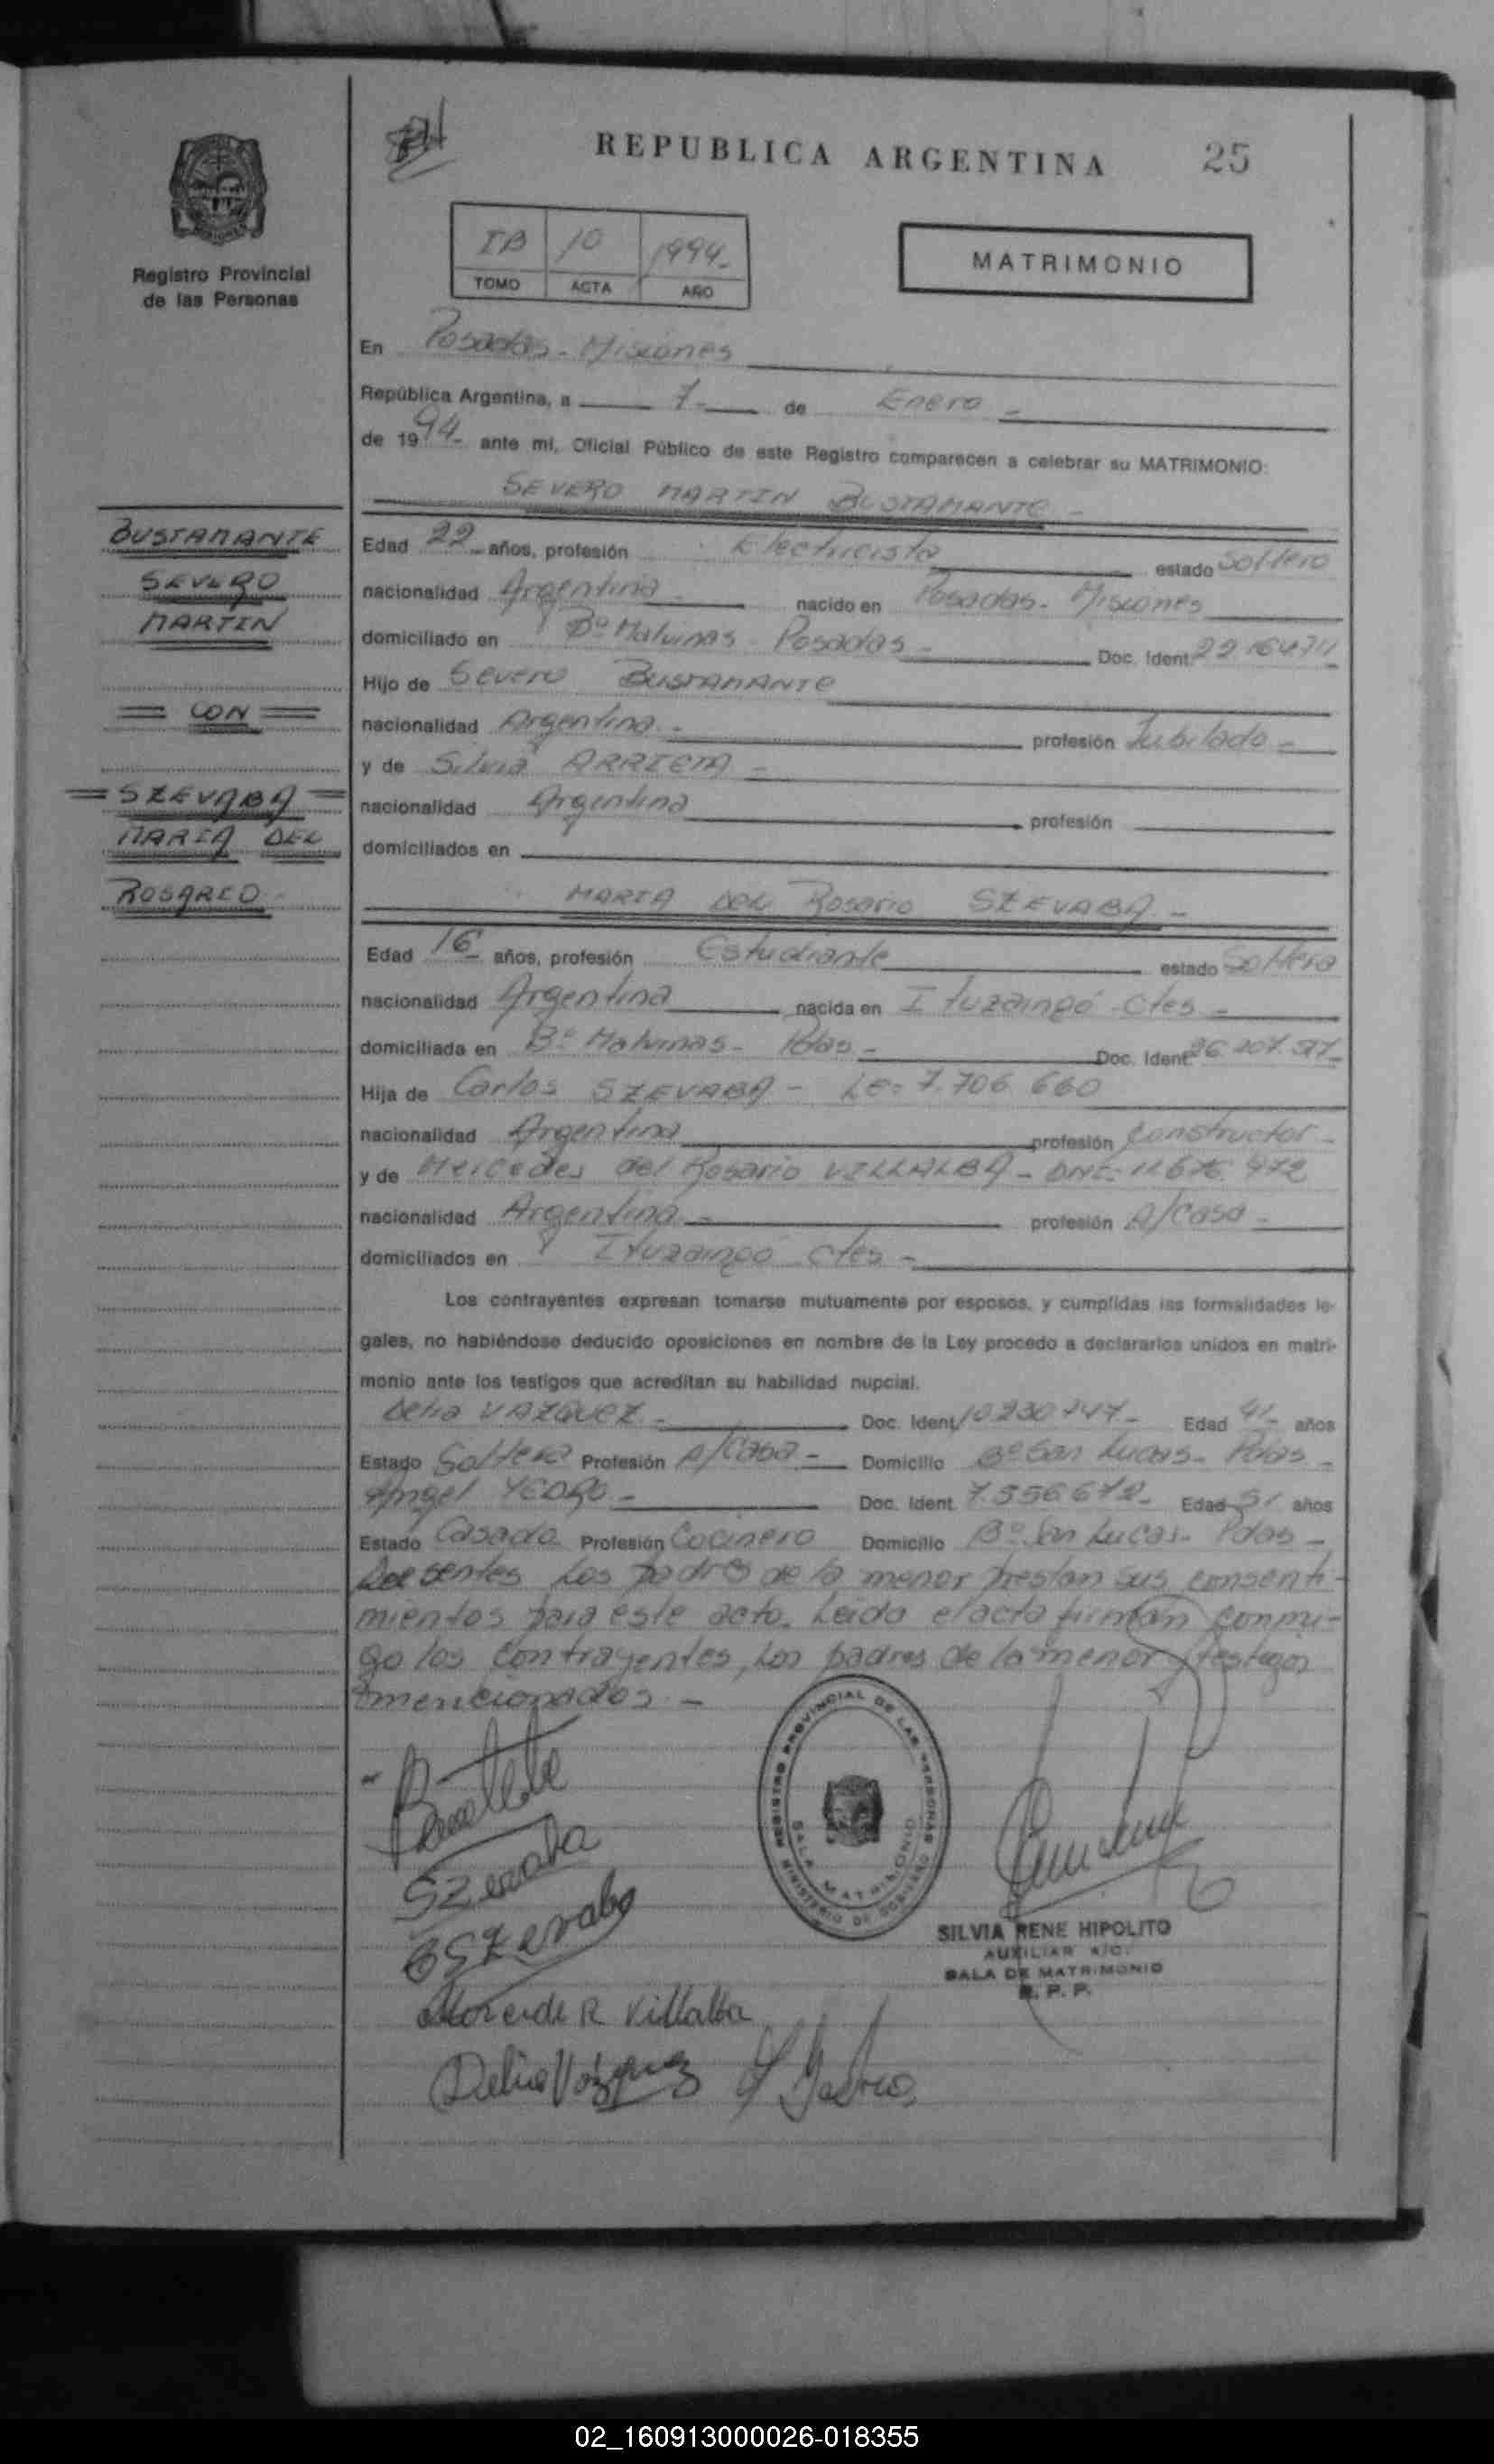 REPUBLICA ARGENTINA 25
Registro Provincial
de las Personas
IB 10 1994-
TOMO ACTA AÑO
MATRIMONIO
En Posadas - Misiones
República Argentina, a 7- de Enero -
de 1994- ante mi, Oficial Público de este Registro comparecen a celebrar su MATRIMONIO:
SEVERO MARTIN BUSTAMANTE -
BUSTAMANTE
SEVERO
MARTIN
= CON =
= SZEVABA =
MARIA DEL
ROSARIO
Edad 22 años, profesión Electricista estado Soltero
nacionalidad Argentina nacido en Posadas - Misiones
domiciliado en Bº Malvinas - Posadas - Doc. Ident.
Hijo de Severo BUSTAMANTE
nacionalidad Argentina - profesión Jubilado -
y de Silvia ARRIETA -
nacionalidad Argentina profesión
domiciliados en
MARIA DEL Rosario SZEVABA -
Edad 16 años, profesión Estudiante estado Soltera
nacionalidad Argentina nacida en Ituzaingó - Ctes -
domiciliada en Bº Malvinas - Pdas - Doc. Ident.
Hija de Carlos SZEVABA - LE: 7.706.660
nacionalidad Argentina profesión Constructor -
y de Mercedes del Rosario VILLALBA - DNI:
nacionalidad Argentina - profesión A/Casa -
domiciliados en Ituzaingó - Ctes -
Los contrayentes expresan tomarse mutuamente por esposos, y cumplidas las formalidades le-
gales, no habiéndose deducido oposiciones en nombre de la Ley procedo a declararlos unidos en matri-
monio ante los testigos que acreditan su habilidad nupcial.
Delia VAZQUEZ - Doc. Ident. Edad 41- años
Estado Soltera Profesión A/Casa - Domicilio Bº San Lucas - Pdas -
Angel - Doc. Ident. 7.556.672- Edad 51 años
Estado Casado Profesión Cocinero Domicilio Bº San Lucas - Pdas -
Presentes Los padres de la menor prestan sus consenti-
mientos para este acto. Leida el acta firman conmi-
go los contrayentes, los padres de la menor y testigos
mencionados. -
REGISTRO PROVINCIAL DE LAS PERSONAS
MINISTERIO DE GOBIERNO
SALA MATRIMONIO
Szevaba
Szevabo
SILVIA RENE HIPOLITO
AUXILIAR A/C.
SALA DE MATRIMONIO
R. P. P.
R Villalba
Delia Vazquez
02_160913000026-018355